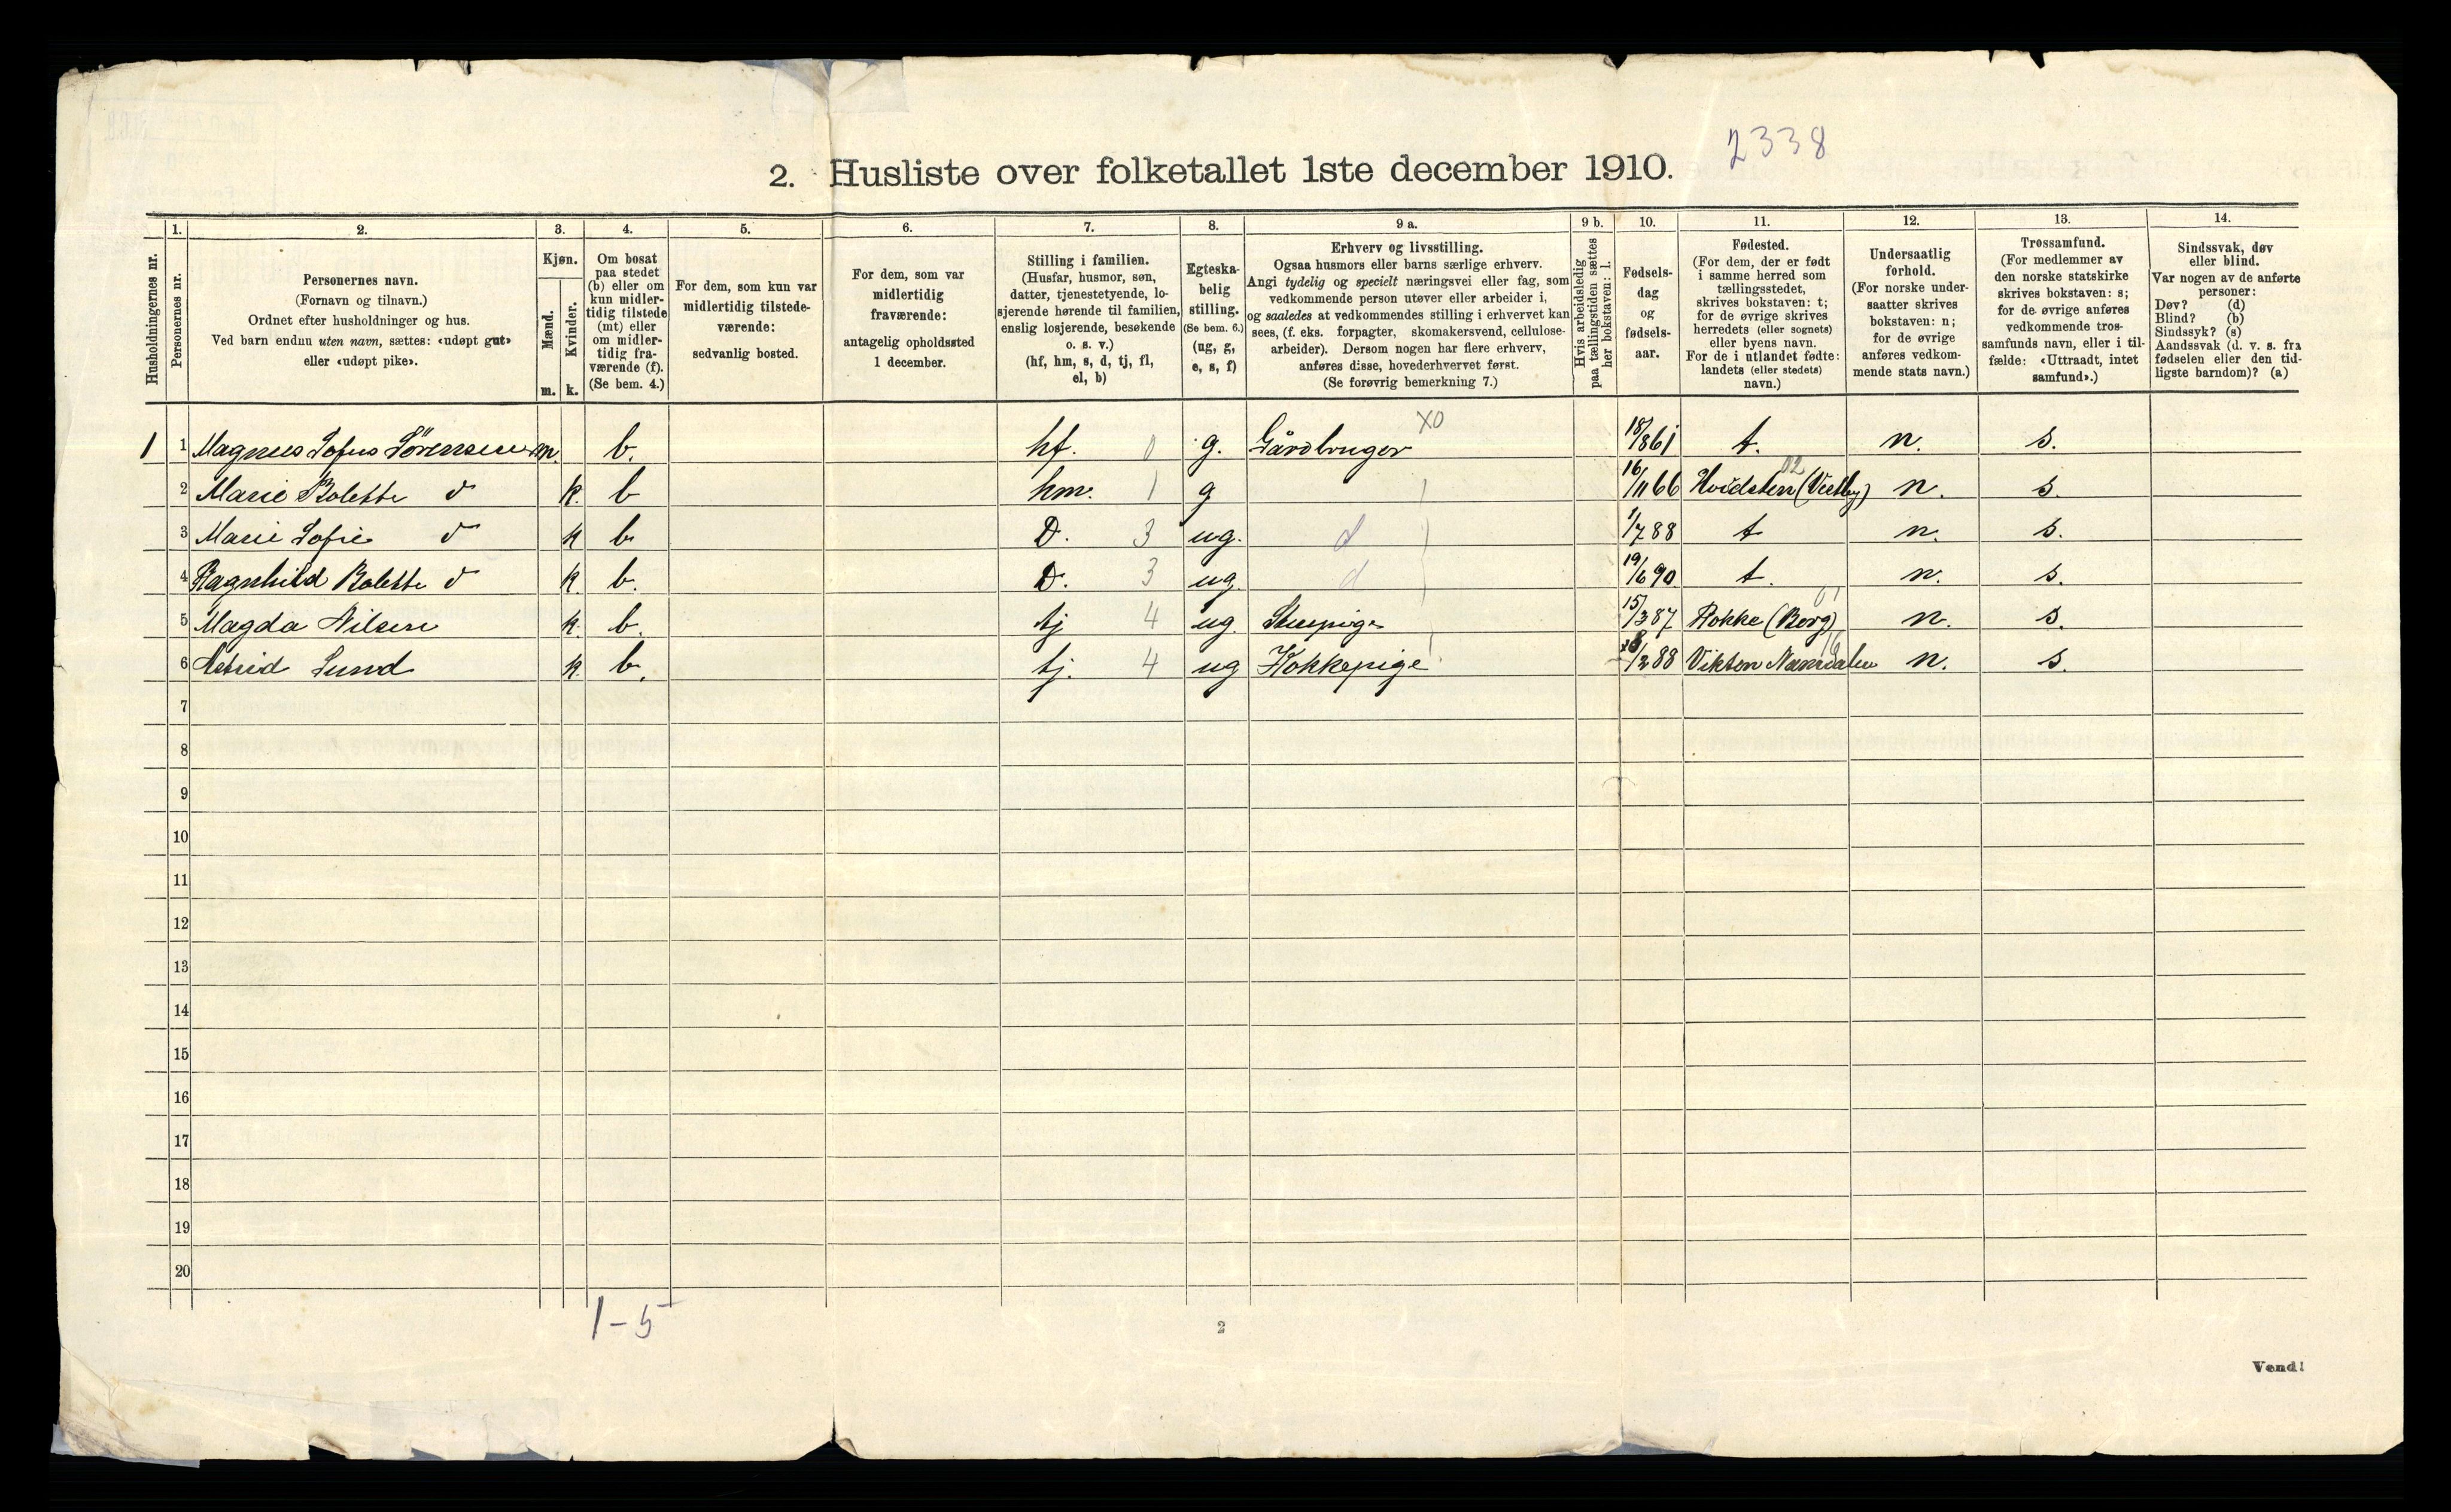 2338
2. Husliste over folketallet 1ste december 1910.
Husholdningernes nr.
1.
Personernes nr.
2.
Personernes navn.
(Fornavn og tilnavn.)
Ordnet efter husholdninger og hus.
Ved barn endnu uten navn, sættes: «udøpt gut»
eller «udøpt pike».
3.
Kjøn.
Mænd.
Kvinder.
m. k.
4.
Om bosat
paa stedet
(b) eller om
kun midler-
tidig tilstede
(mt) eller
om midler-
tidig fra-
værende (f).
(Se bem. 4.)
5.
For dem, som kun var
midlertidig tilstede-
værende:
sedvanlig bosted.
6.
For dem, som var
midlertidig
fraværende:
antagelig opholdssted
1 december.
7.
Stilling i familien.
(Husfar, husmor, søn,
datter, tjenestetyende, lo-
sjerende hørende til familien,
enslig losjerende, besøkende
o. s. v.)
(hf, hm, s, d, tj, fl,
el, b)
8.
Egteska-
belig
stilling.
(Se bem. 6.)
(ug, g,
e, s, f)
9 a.
Erhverv og livsstilling.
Ogsaa husmors eller barns særlige erhverv.
Angi tydelig og specielt næringsvei eller fag, som
vedkommende person utøver eller arbeider i,
og saaledes at vedkommendes stilling i erhvervet kan
sees, (f. eks. forpagter, skomakersvend, cellulose-
arbeider). Dersom nogen har flere erhverv,
anføres disse, hovederhvervet først.
(Se forøvrig bemerkning 7.)
9 b.
Hvis arbeidsledig
paa tællingstiden sættes
her bokstaven: l.
10.
Fødsels-
dag
og
fødsels-
aar.
11.
Fødested.
(For dem, der er født
i samme herred som
tællingsstedet,
skrives bokstaven: t;
for de øvrige skrives
herredets (eller sognets)
eller byens navn.
For de i utlandet fødte:
landets (eller stedets)
navn.)
12.
Undersaatlig
forhold.
(For norske under-
saatter skrives
bokstaven: n;
for de øvrige
anføres vedkom-
mende stats navn.)
13.
Trossamfund.
(For medlemmer av
den norske statskirke
skrives bokstaven: s;
for de øvrige anføres
vedkommende tros-
samfunds navn, eller i til-
fælde: «Uttraadt, intet
samfund».)
14.
Sindssvak, døv
eller blind.
Var nogen av de anførte
personer:
Døv? (d)
Blind? (b)
Sindssyk? (s)
Aandssvak (d. v. s. fra
fødselen eller den tid-
ligste barndom)? (a)
1 1 Magnus Sofus Sörensen m. b. hf. 0 g. Gårdbruger X0 18/8 61 t. n. s.
2 Marie Bolette d k. b hm. 1 g 16/11 66 Hvidsten (Vestby) 02 n. s.
3 Marie Sofie d k b D. 3 ug. d 1/7 88 t n. s.
4 Ragnhild Bolette d k. b. D. 3 ug. d 19/6 90 t. n. s.
5 Magda Nilsen k. b. tj 4 ug. Stuepige 15/3 87 Rokke (Berg) 01 n. s.
6 Astrid Lund k. b. tj. 4 ug Kokkepige /2 88 Vikten Namdalen n. s.
7
8
9
10
11
12
13
14
15
16
17
18
19
20
1-5
2
Vend!